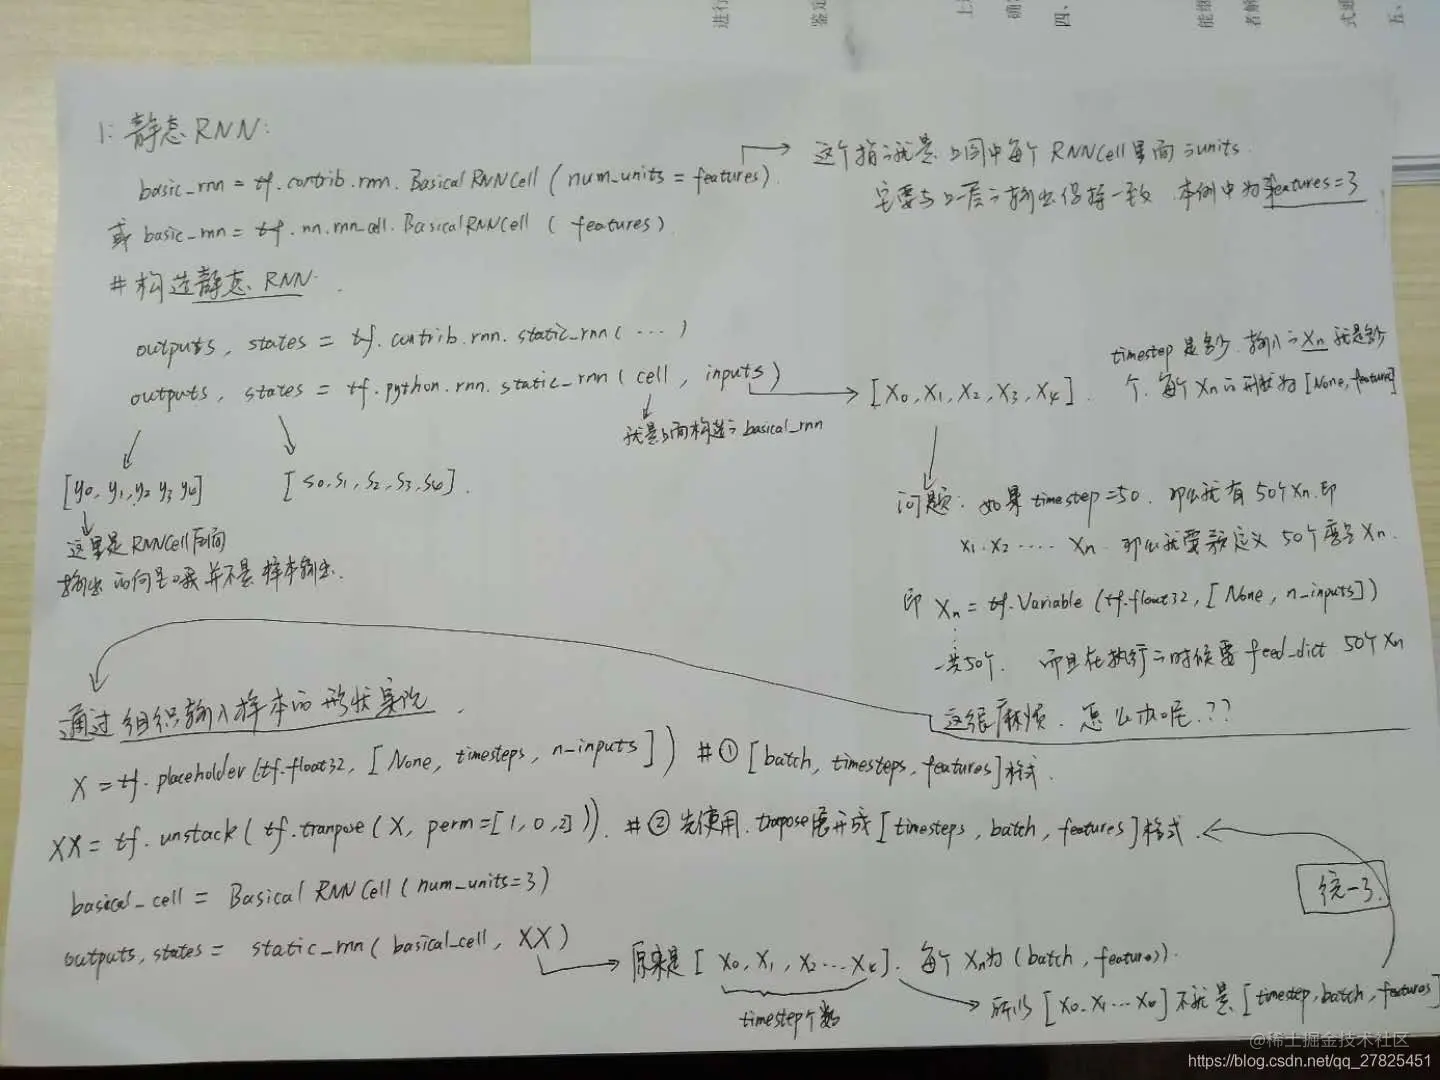 进行
鉴定
上述
确
四、
能继
者解
式通
五、
1: 静态 RNN:
basic_rnn = tf.contrib.rnn.BasicalRNNCell ( num_units = features ).
这个指的就是上图中每个 RNNCell 里面的 units.
它要与上一层的输出保持一致. 本例中为 features = 3
或 basic_rnn = tf.nn.rnn_cell.BasicalRNNCell ( features )
# 构造静态 RNN.
outputs, states = tf.contrib.rnn.static_rnn ( ... )
outputs, states = tf.python.rnn.static_rnn ( cell, inputs )
就是上面构造的 basical_rnn
[X0, X1, X2, X3, X4].
timestep 是多少. 输入的 Xn 就是多少
个. 每个 Xn 的形状为 [None, feature]
[y0, y1, y2 y3 y4]
[ S0, S1, S2, S3, S4 ].
这里是 RNNCell 后面
输出的向量哦并不是样本输出.
问题: 如果 timestep = 50. 那么就有 50个 Xn. 即
X1. X2 ..... Xn. 那么就要定义 50个变量 Xn.
即 Xn = tf.Variable (tf.float32, [ None, n_inputs])
一共50个. 而且在执行的时候要 feed_dict 50个 Xn
这很麻烦. 怎么办呢. ??
通过组织输入样本的形状实现.
X = tf.placeholder (tf.float32, [ None, timesteps, n_inputs ]) # ① [batch, timesteps, features] 格式.
XX = tf.unstack ( tf.tranpose ( X, perm=[1, 0, 2])). # ② 先使用. tranpose 展开成 [timesteps, batch, features] 格式.
basical_cell = BasicalRNNCell ( num_units=3 )
统一了.
outputs, states = static_rnn ( basical_cell, XX )
原来是 [ X0, X1, X2 ... X4 ]. 每个 Xn 为 (batch, features).
timestep个数
所以 [ X0. X1 ... X4 ] 不就是 [timestep, batch, features]
@稀土掘金技术社区
https://blog.csdn.net/qq_27825451